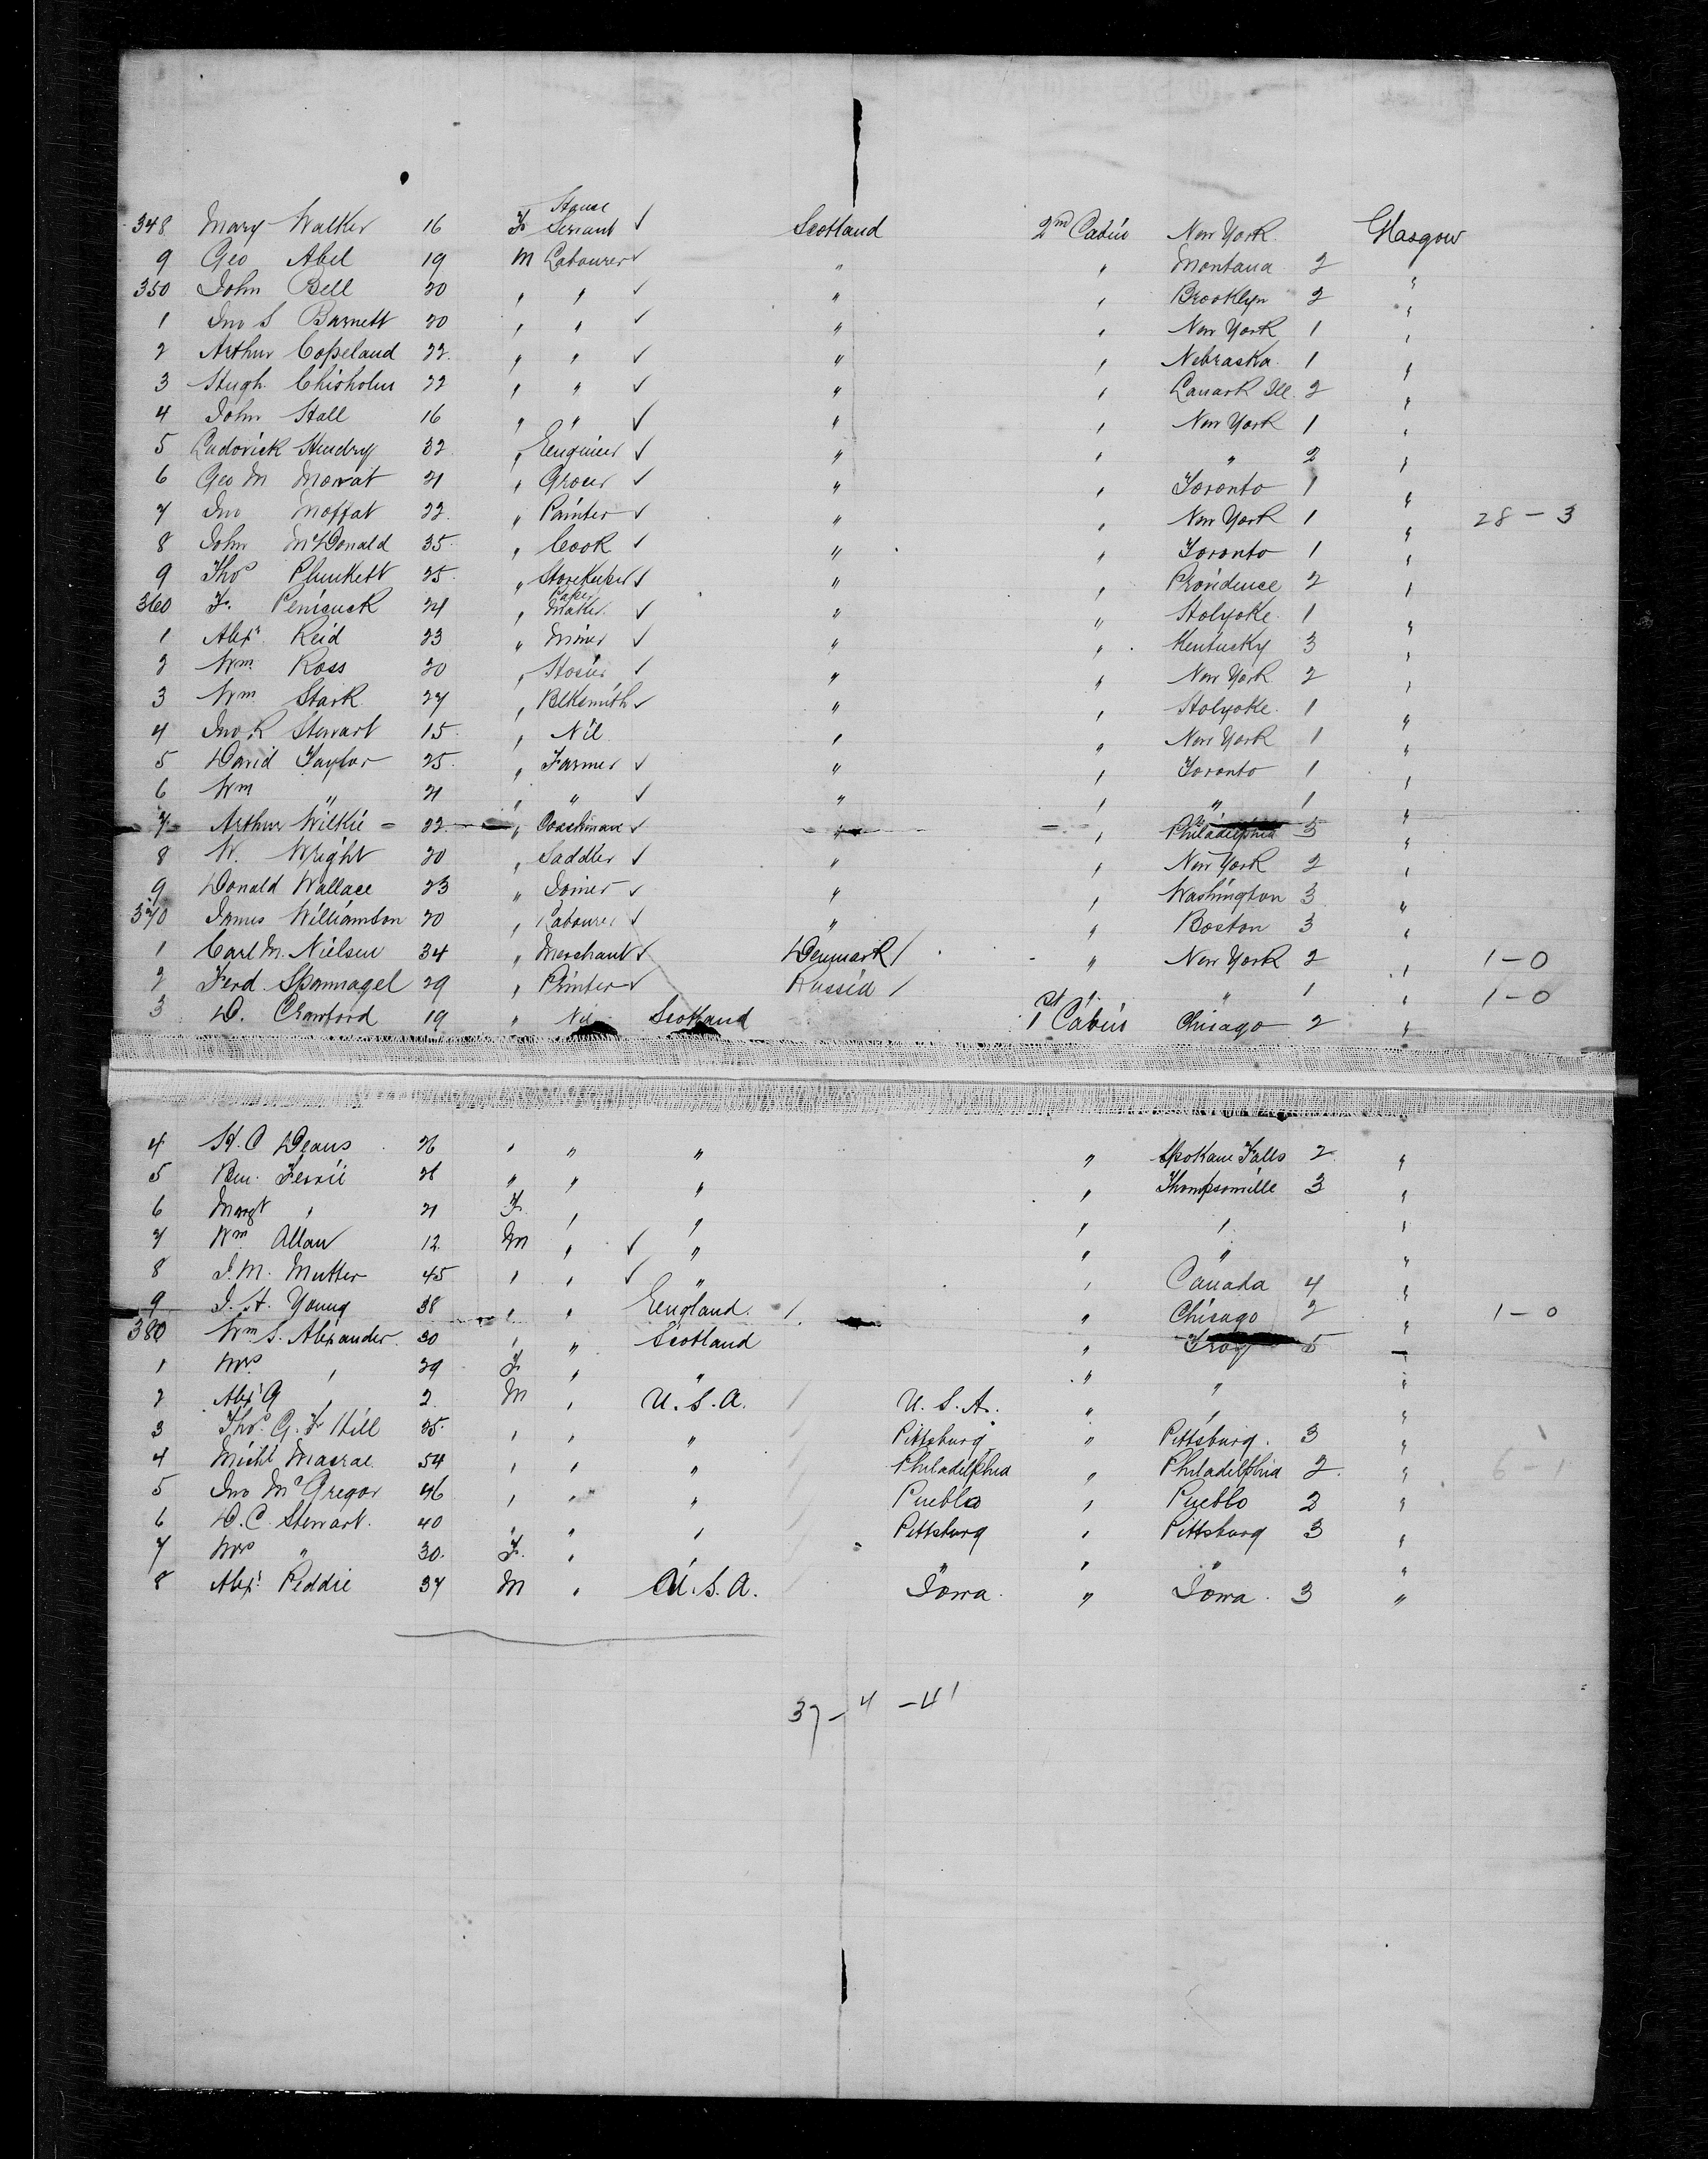 348 Mary Walker 16 F House Servant ✓ Scotland 2nd Cabin New York Glasgow
9 Geo Abel 19 M Labourer ✓ " " Montana 2 "
350 John Bell 20 " " ✓ " " Brooklyn 2 "
1 Jno S Barnett 20 " " ✓ " " New York 1 "
2 Arthur Copeland 22 " " ✓ " " Nebraska 1 "
3 Hugh Chisholm 22 " " ✓ " " Lanark Ill. 2 "
4 John Hall 16 " " ✓ " " New York 1 "
5 Ludovick Hendry 32 " Engineer ✓ " " " 2 "
6 Geo M Mowat 21 " Grocer ✓ " " Toronto 1 "
7 Jno Moffat 22 " Painter ✓ " " New York 1 " 28 - 3
8 John McDonald 35 " Cook ✓ " " Toronto 1 "
9 Thos Plunkett 25 " Storekeeper ✓ " " Providence 2 "
360 F. Penicuck 21 " Paper Maker ✓ " " Holyoke 1 "
1 Alexr Reid 23 " Miner ✓ " " Kentucky 3 "
2 Wm Ross 20 " Hosier ✓ " " New York 2 "
3 Wm Stark 27 " Blksmith ✓ " " Holyoke 1 "
4 Jno R Stewart 15 " Nil " " New York 1 "
5 David Taylor 25 " Farmer ✓ " " Toronto 1 "
6 Wm " 21 " " ✓ " " " 1 "
7 Arthur Wilkie 22 " Coachman ✓ " " Philadelphia 5 "
8 W. Wright 20 " Saddler ✓ " " New York 2 "
9 Donald Wallace 23 " Joiner ✓ " " Washington 3 "
370 James Williamson 20 " Labourer ✓ " " Boston 3 "
1 Carl M. Nielsen 34 " Merchant ✓ Denmark / " New York 2 " 1 - 0
2 Ferd. Spannagel 29 " Printer ✓ Russia / " " 1 " 1 - 0
3 D. Crawford 19 " Nil Scotland 1st Cabin Chicago 2 "
4 H. C Deans 26 " " " " Spokane Falls 2 "
5 Ben. Ferrie 28 " " " " Thompsonville 3 "
6 Margt " 21 F. " " " " "
7 Wm Allan 12 M " ✓ " " " "
8 J. M. Mutter 45 " " ✓ " " Canada 4 "
9 J. A. Young 38 " " England / " Chicago 2 " 1 - 0
380 Wm S. Alexander 30 " " Scotland " Troy 5 "
1 Mrs " 29 F. " " " " "
2 Alexr G " 2 M " U. S. A. / U. S. A. " " "
3 Thos G. F Hill 35 " " " Pittsburg " Pittsburg 3 "
4 Michl Macrae 54 " " " Philadelphia " Philadelphia 2 " 6 - 1
5 Jno McGregor 46 " " " Pueblo " Pueblo 2 "
6 D. C. Stewart 40 " " " Pittsburg " Pittsburg 3 "
7 Mrs " 30 F. " " " "
8 Alexr Peddie 37 M " U. S. A. Iowa " Iowa 3 "
37 - 4 - 41